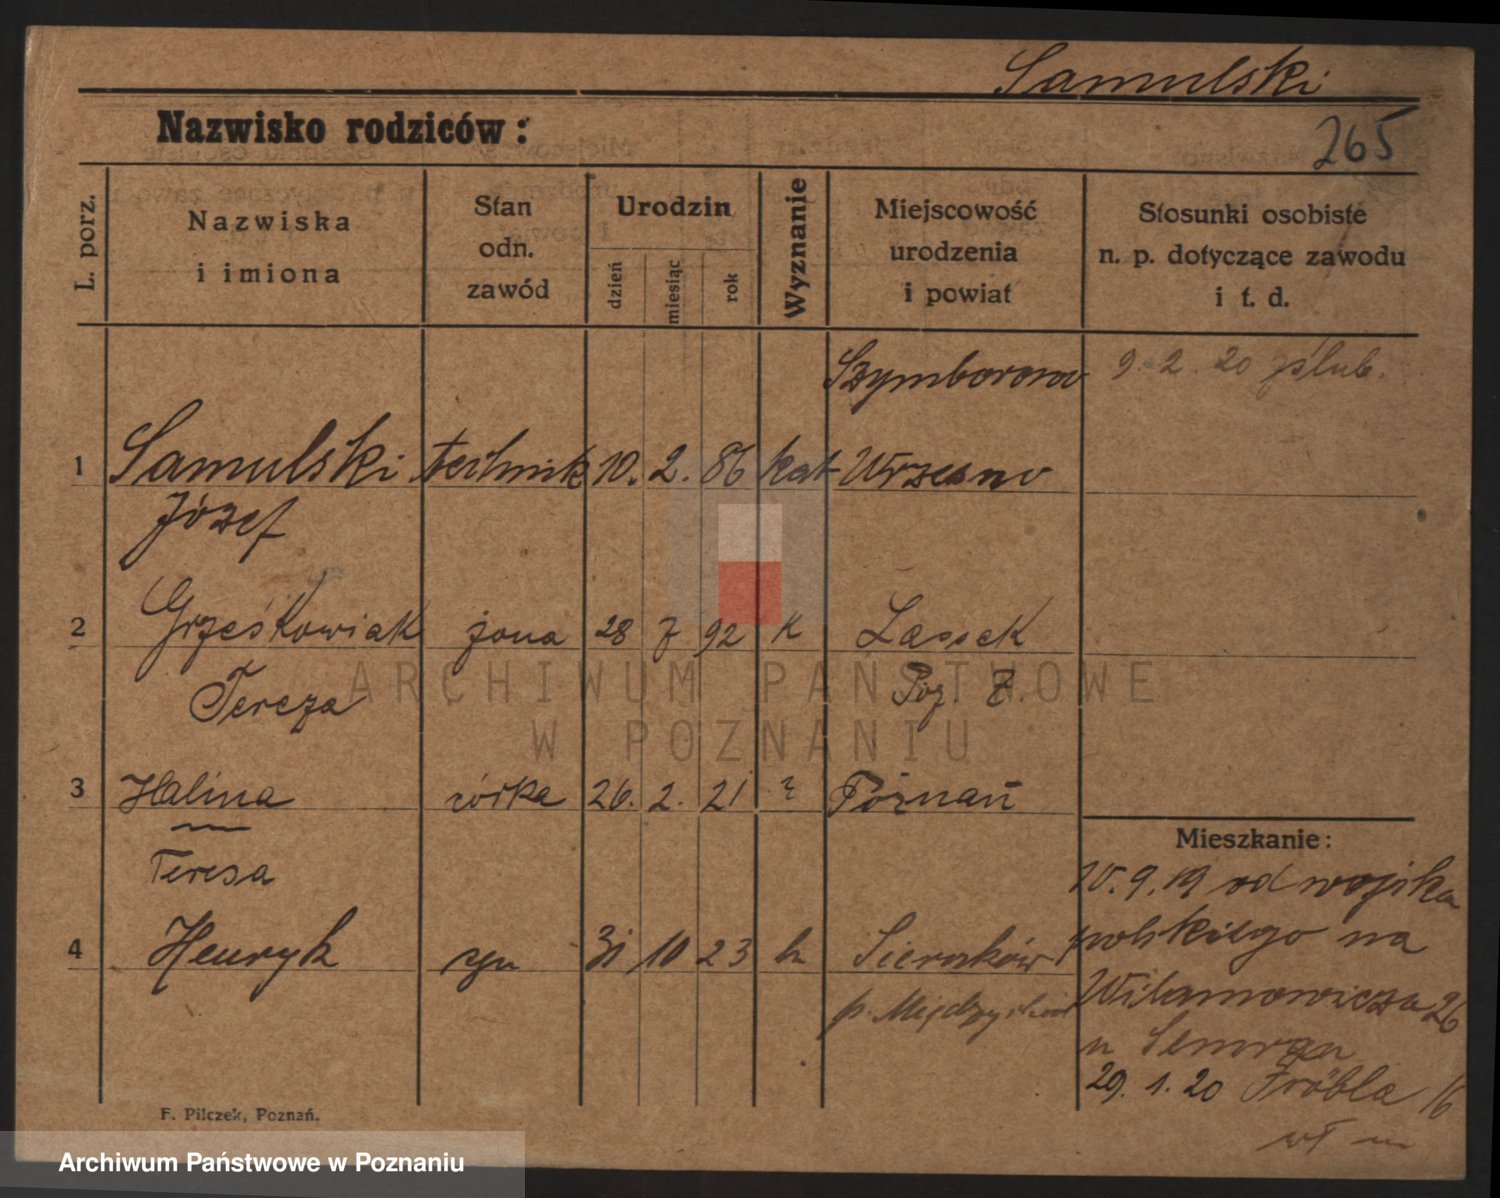 Samulski
Nazwisko rodziców:
265
L. porz.
Nazwiska
i imiona
Stan
odn.
zawód
Urodzin
dzień
miesiąc
rok
Wyznanie
Miejscowość
urodzenia
i powiat
Stosunki osobiste
n. p. dotyczące zawodu
i t. d.
Szymborowo 9. 2. 20 ślub.
1 Samulski technik 10. 2. 86 kat
Józef
2 Grześkowiak żona 28 7 92 K Lassek
Tereza Poz. Z.
3 Halina córka 26. 2. 21 Poznań
Teresa
4 Henryk syn 31 10 23 Sieraków
p. Międzychód
Mieszkanie:
10. 9. 19 od wojska
polskiego na
26
29. 1. 20 Fröbla 16
F. Pilczek, Poznań.
ARCHIWUM PAŃSTWOWE
W POZNANIU
Archiwum Państwowe w Poznaniu